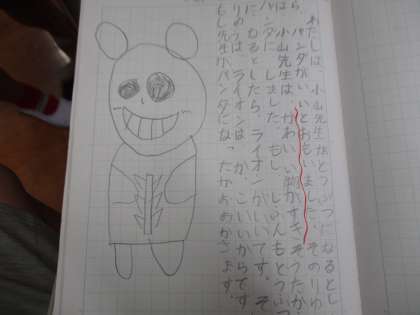 わたしは、小山先生がどうぶつになるとし
ら、パンダがいいとおもいました。そのりゆ
は、小山先生は、かわいい物がすきそうだか
パンダにしました。もし、じぶんもどうぶつ
になるとしたら、ライオンがいいです。そ
りゆうは、ライオンは、かっこいいからです
もし先生がパンダになったかおおかきます。